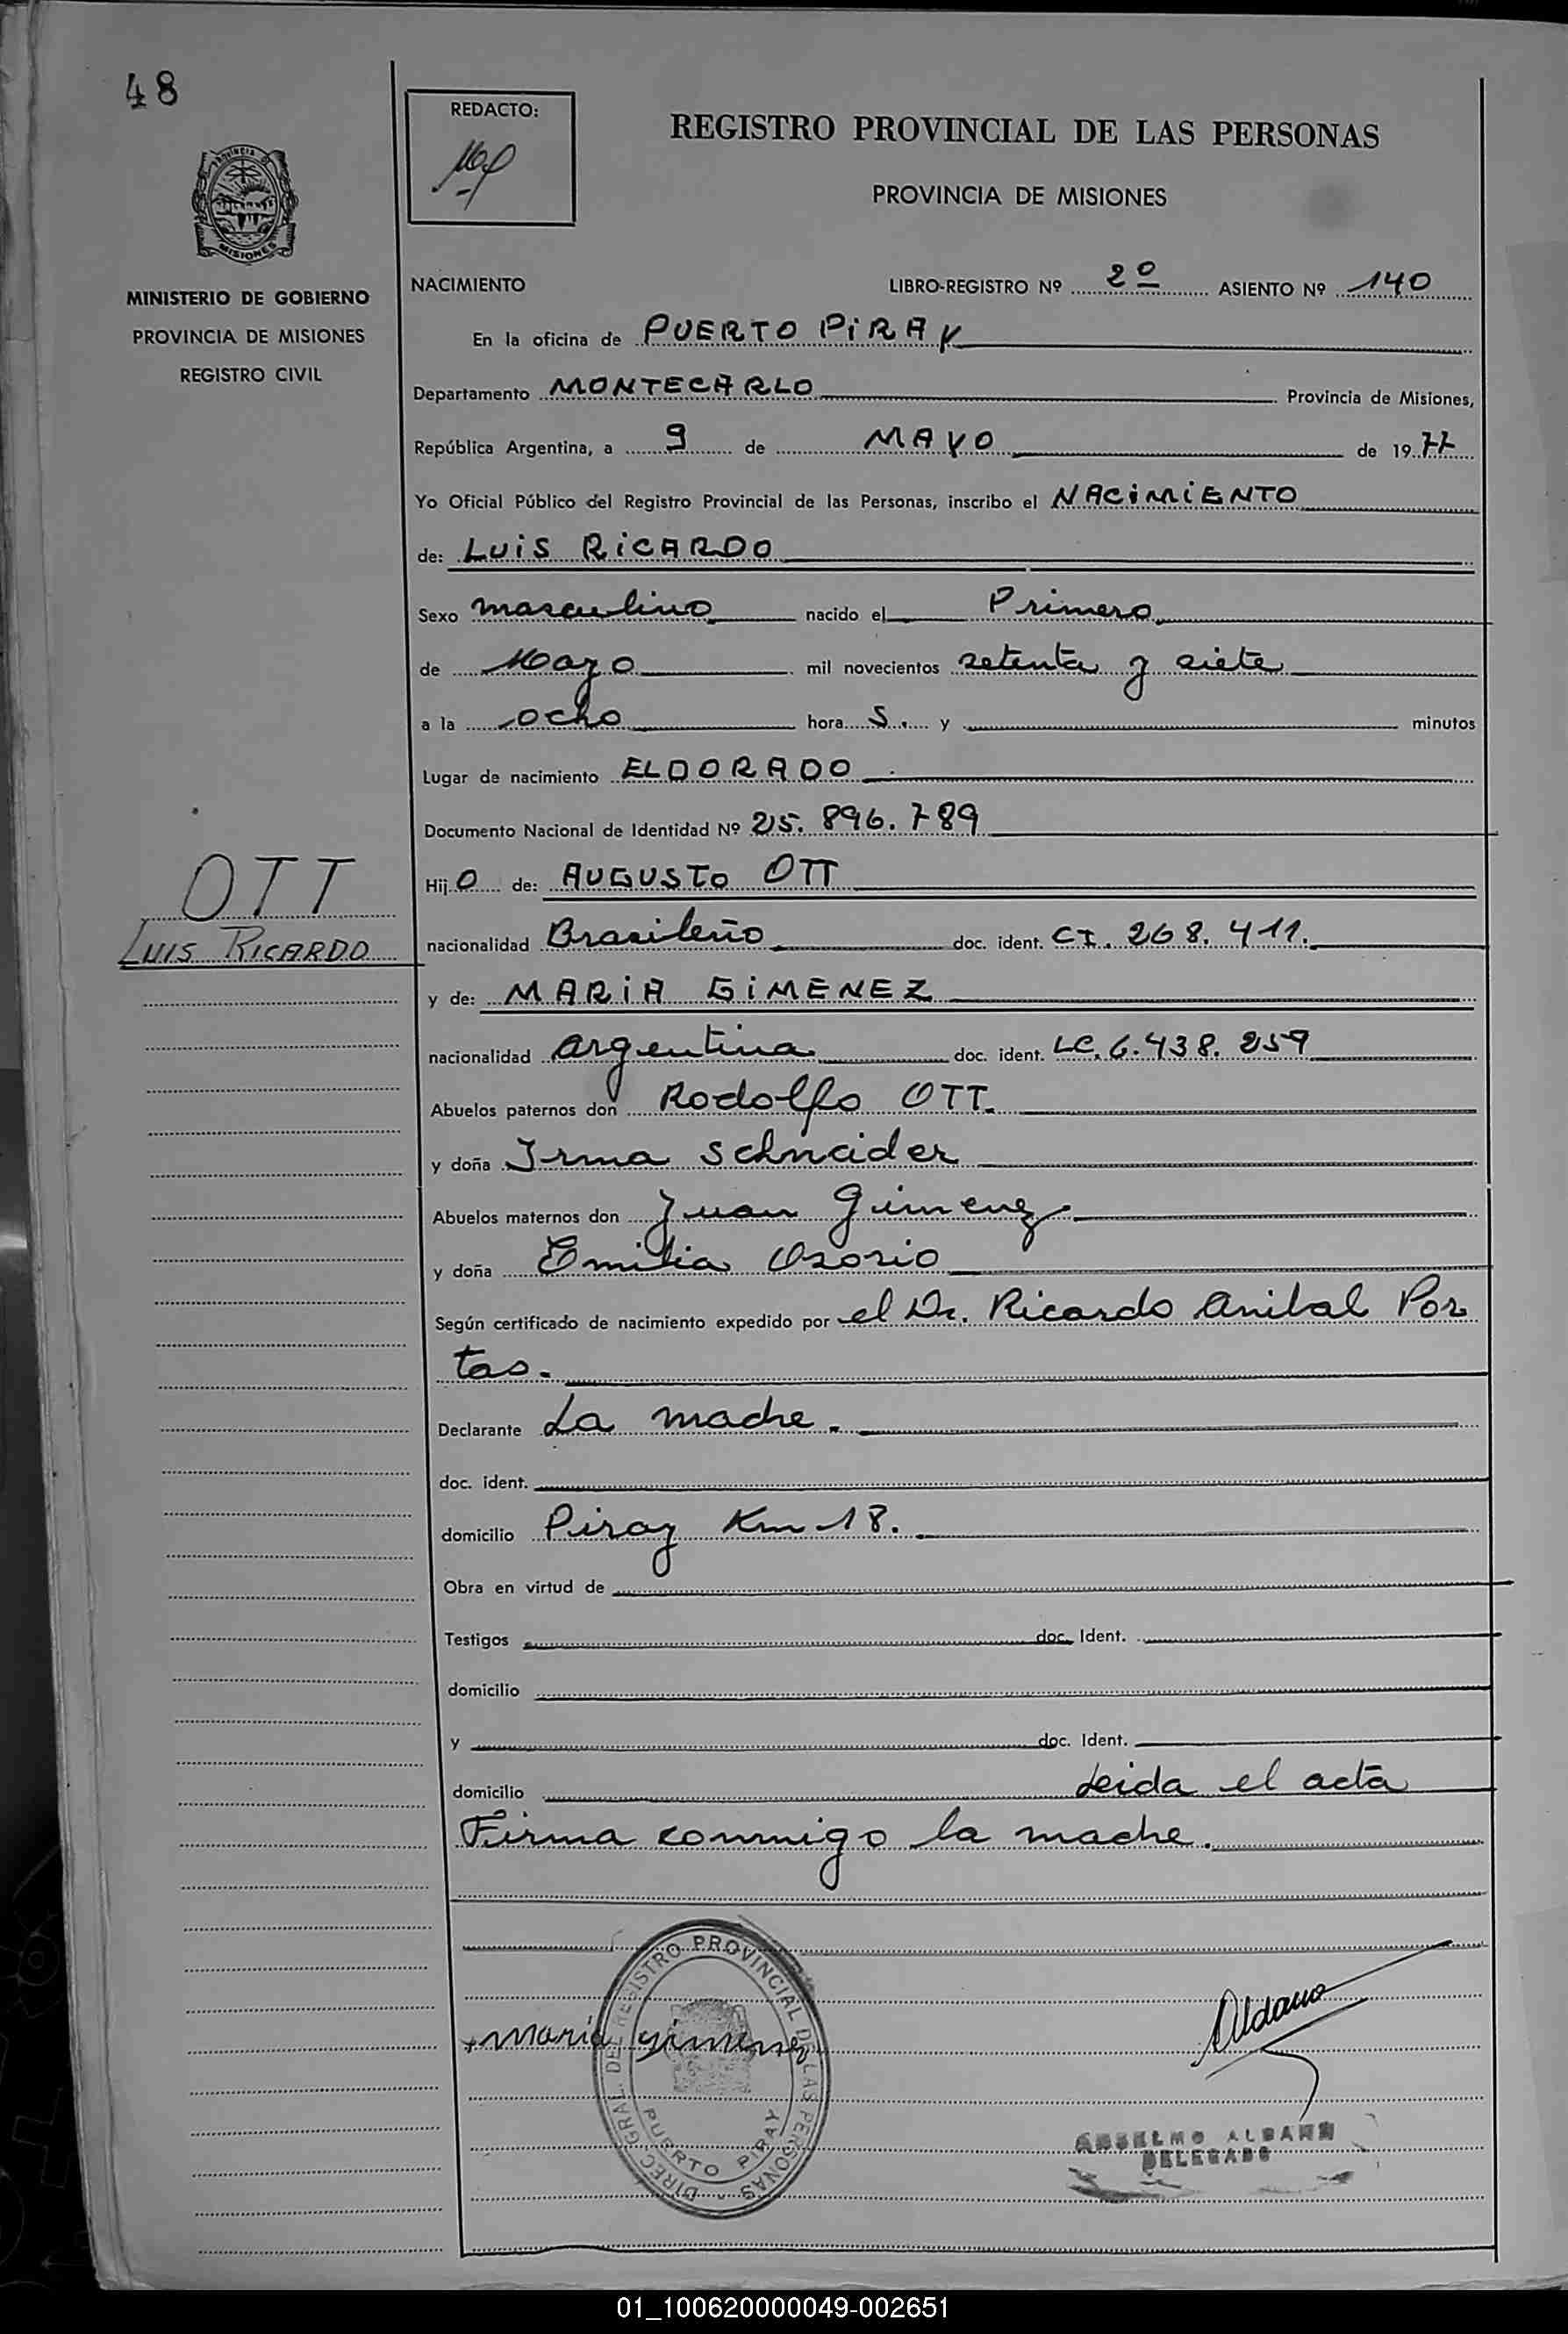 48
REDACTO:
REGISTRO PROVINCIAL DE LAS PERSONAS
PROVINCIA DE MISIONES
PROVINCIA
MISIONES
MINISTERIO DE GOBIERNO
PROVINCIA DE MISIONES
REGISTRO CIVIL
NACIMIENTO LIBRO-REGISTRO Nº 2º ASIENTO Nº 140
En la oficina de PUERTO PIRAY
Departamento MONTECARLO Provincia de Misiones,
República Argentina, a 9 de MAYO de 1977
Yo Oficial Público del Registro Provincial de las Personas, inscribo el NACIMIENTO
de: LUIS RICARDO
Sexo masculino nacido el Primero
de Mayo mil novecientos setenta y siete
a la ocho hora s. y minutos
Lugar de nacimiento ELDORADO
Documento Nacional de Identidad Nº 25.896.789
OTT
LUIS RICARDO
Hijo de: AUGUSTO OTT
nacionalidad Brasileño doc. ident. CI. 268.411.
y de: MARIA GIMENEZ
nacionalidad argentina doc. ident. LC. 6.438.259
Abuelos paternos don Rodolfo OTT.
y doña Irma Schneider
Abuelos maternos don Juan Gimenez
y doña Emilia Osorio
Según certificado de nacimiento expedido por el Dr. Ricardo Anibal Por
tas.
Declarante La madre.
doc. ident.
domicilio Piray Km 18.
Obra en virtud de
Testigos doc. Ident.
domicilio
y doc. Ident.
domicilio Leida el acta
Firma conmigo la madre.
DIREC. GRAL. DEL REGISTRO PROVINCIAL DE LAS PERSONAS
PUERTO PIRAY
maria gimenez
Aldana
ANSELMO ALDANA
DELEGADO
01_100620000049-002651